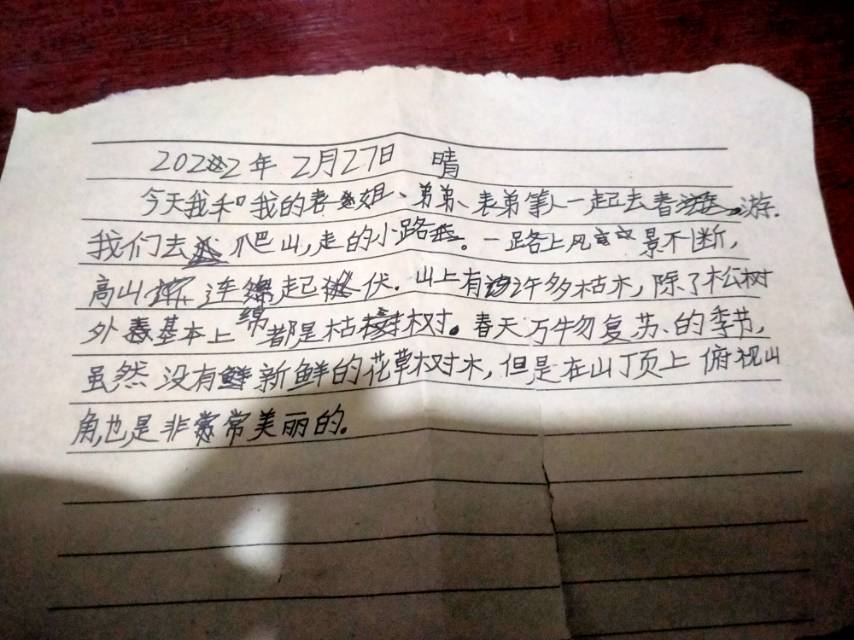 2022年2月27日 晴
今天我和我的表姐、弟弟、表弟等人一起去春游.
我们去爬山,走的小路。一路上风景不断,
高山连绵起伏.山上有许多枯木,除了松树
外基本上都是枯树。春天万物复苏的季节,
虽然没有新鲜的花草树木,但是在山顶上俯视山
角,也是非常美丽的。